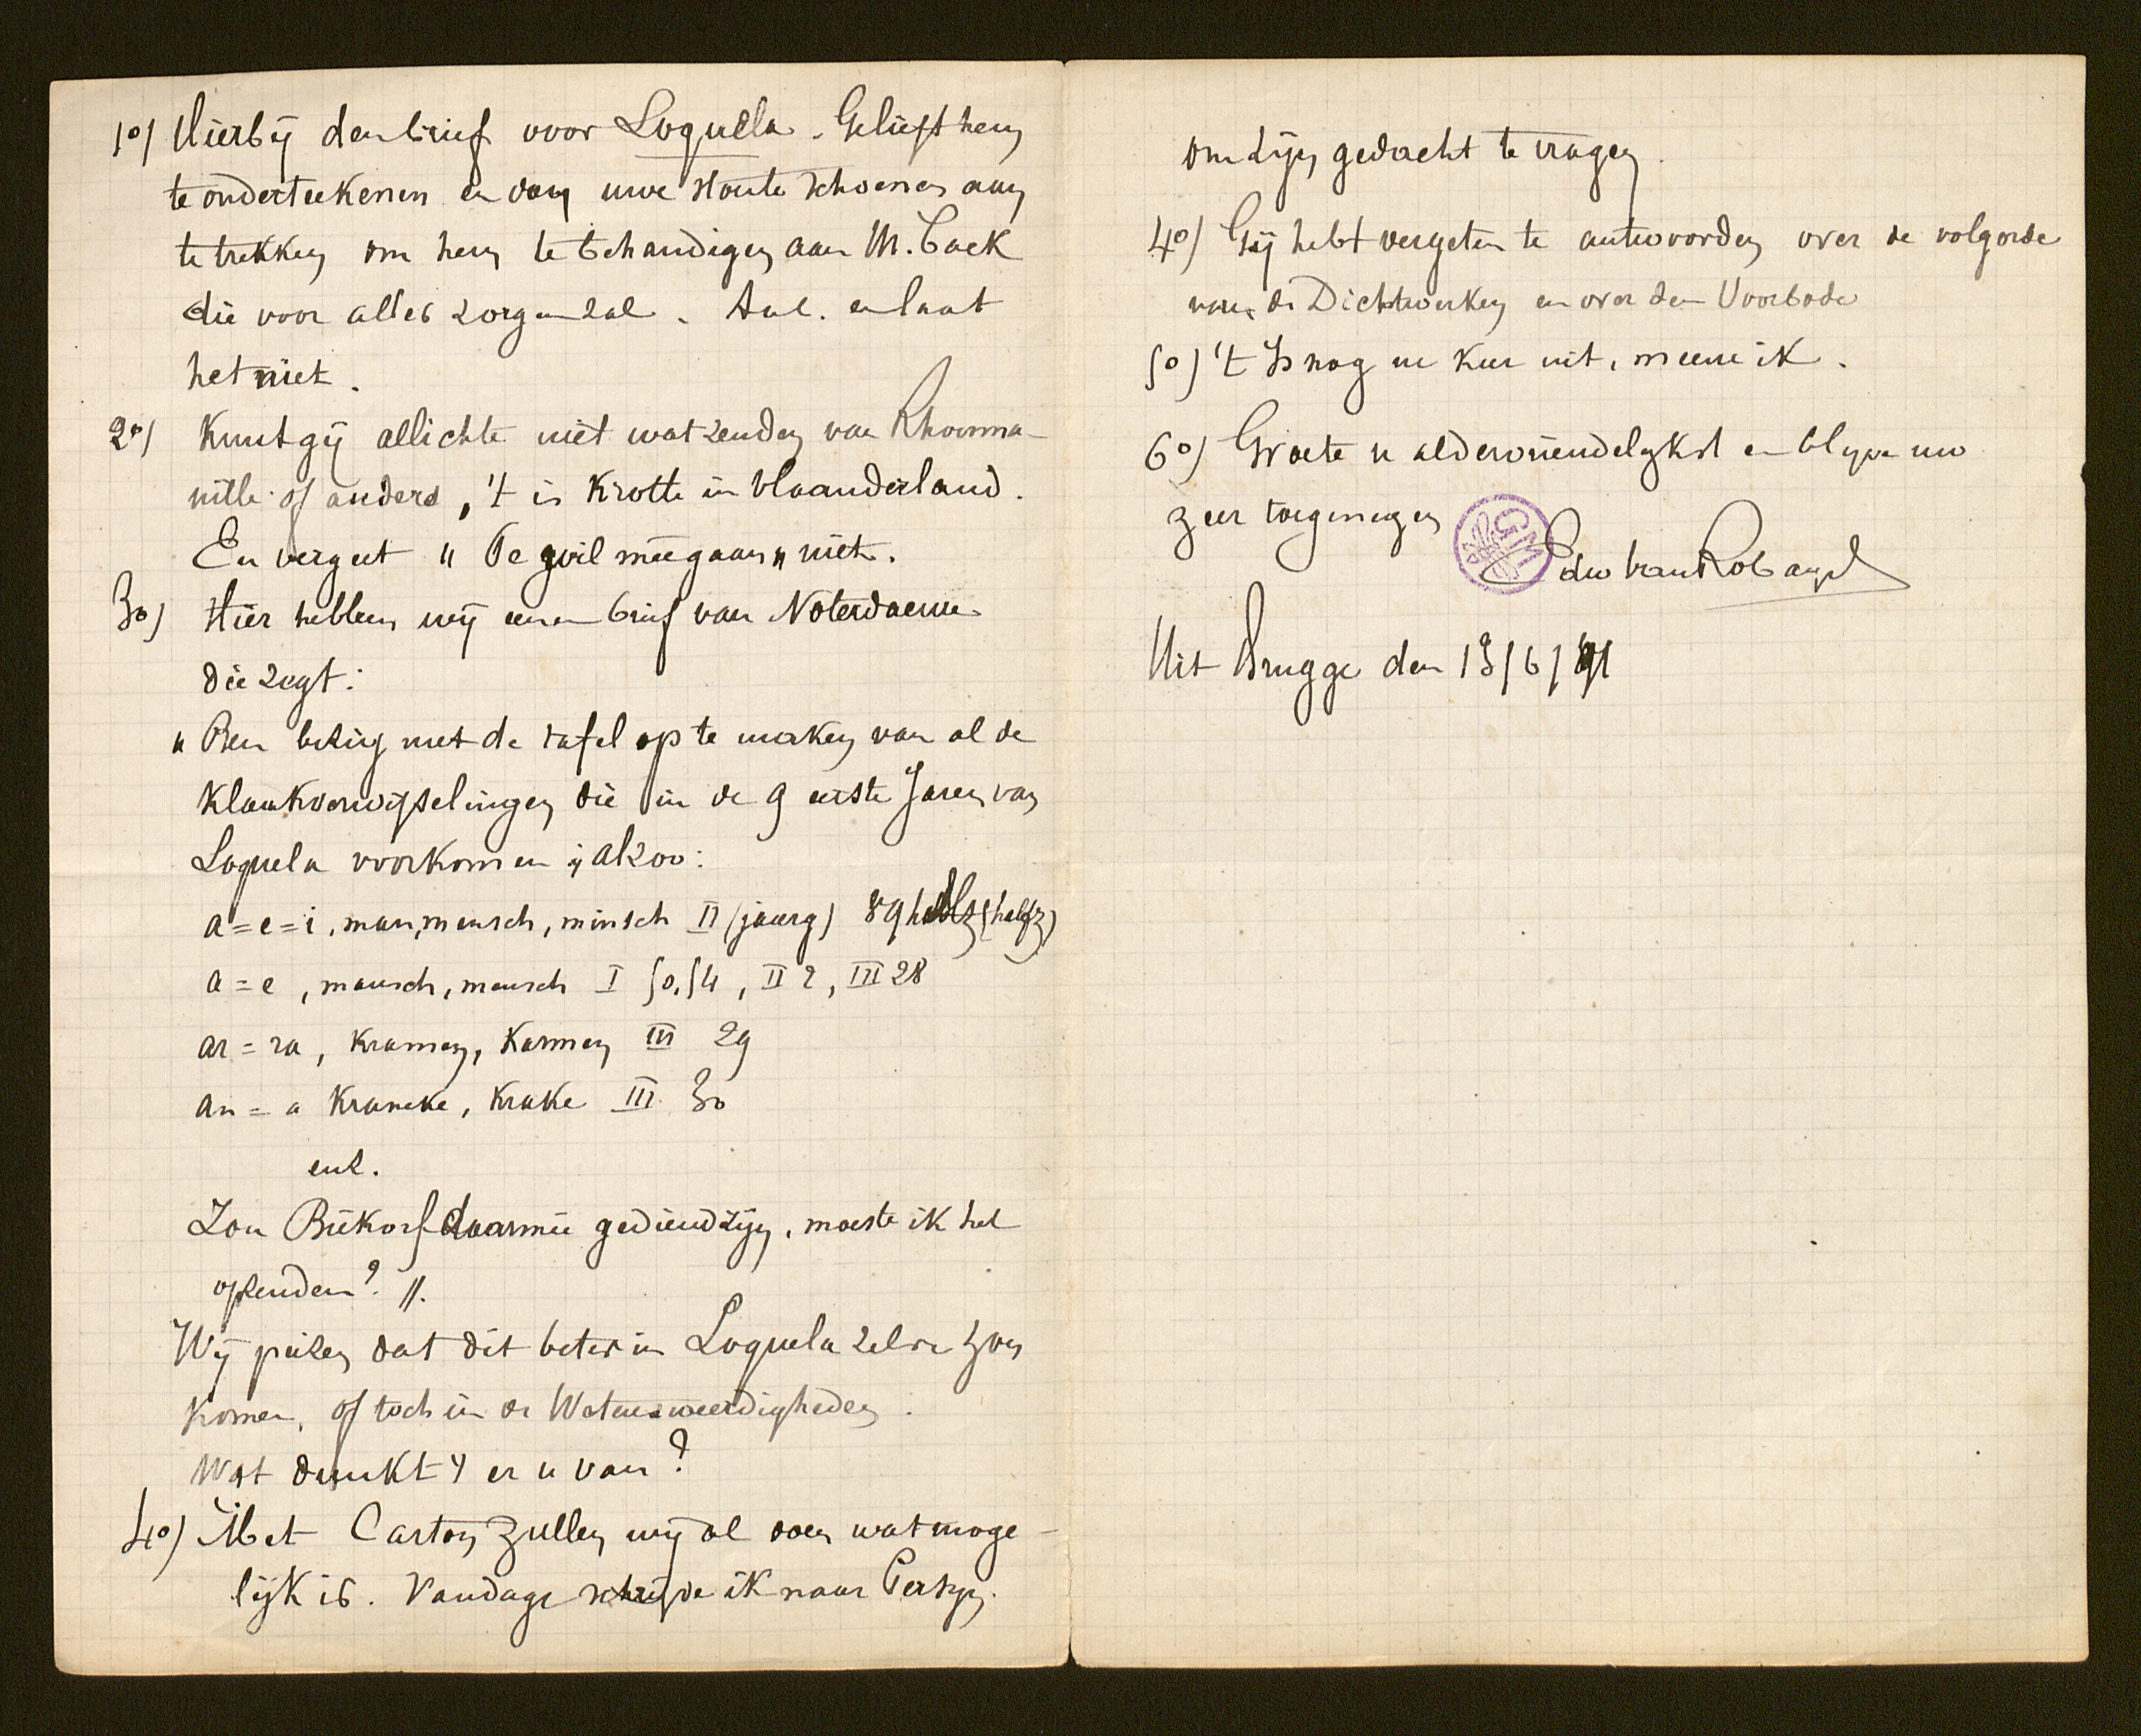 1º) Hierbij den brief voor Loquela. Gelieft hem
te onderteekenen en dan uwe stoute schoenen aan
te trekken om hem te behandigen aan M. Cack
die voor alles zorgen zal. en laat
het niet.
2º) Kunt gij allichte niet wat zenden van Rhoinna-
nille of anders, 't is Krotte in Vlaanderland.
En vergeet " De wil meegaan " niet.
3º) Hier hebben wij eenen brief van Noterdaeme
die zegt:
" Ben bezig met de tafel op te maken van al de
klankverwisselingen die in de 9 eerste Jaren van
Loquela voorkomen; alzoo:
a = e = i, man, mensch, minsch II (jaarg) 89 (halfz)
a = e, mansch, mensch I 50, 54, II 2, III 28
ar = ra, kramen, karmen III 29
an = a krancke, krake III 30
enz.
Zou Biekorf daarmee gediend zijn, moeste ik het
opzenden? ".
Wij peizen dat dit beter in Loquela zelve zou
komen, of toch in de Wetensweerdigheden.
Wat dunkt er u van?
4º) Met Carton zullen wij al doen wat moge-
lijk is. Vandage schrijve ik naar Persyn
om zijn gedacht te vragen.
4º) Gij hebt vergeten te antwoorden over de volgorde
van de Dichtwerken en over den Voorbode
5º) 't Is nog ne keer uit, meene ik.
6º) Groete u aldervriendelykst en blyve uw
zeer toegenegen
GM
Edw Van Robays
Uit Brugge den 13/6/91